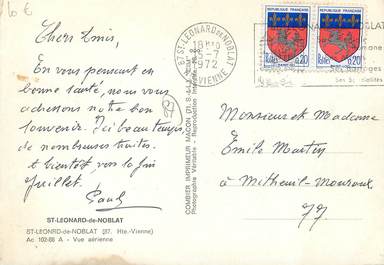 10 €
Chers Amis,
En vous pensant en
bonne santé, nous vous
adressons notre bon
souvenir. J'ai beau temps,
de nombreuses truites.
et bientôt vers la fin
Juillet.
Paul
ST-LEONARD-de-NOBLAT
ST-LEONRD-de-NOBLAT (87. Hte-Vienne)
Ac 102-86 A - Vue aérienne
COMBIER IMPRIMEUR MACON
Photographie Véritable - Reproduction Interdite
87
87 ST-LEONARD DE NOBLAT
1972
VIENNE
0,20
0,20
NOBLAT
Monsieur et Madame
Emile Martin
à Mitheuil-Monsoux
77.